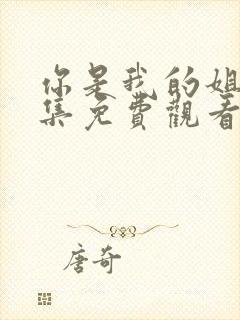 你是我的姐
集免費觀看
唐奇